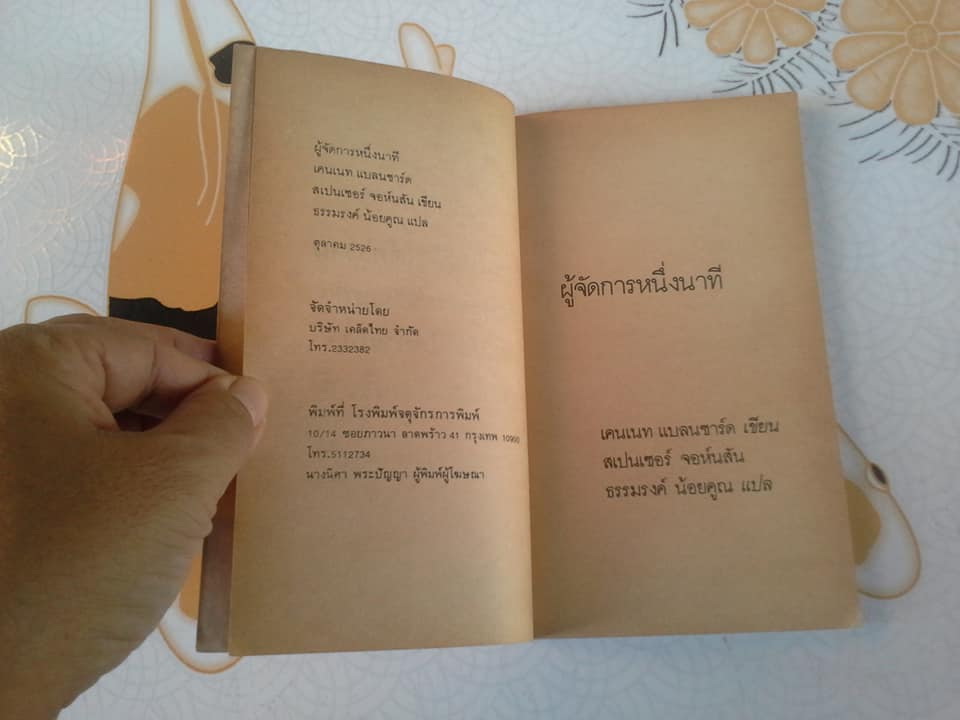 ผู้จัดการหนึ่งนาที
เคนเนท แบลนชาร์ด
สเปนเซอร์ จอห์นสัน เขียน
ธรรมรงค์ น้อยคูณ แปล
ตุลาคม 2526
จัดจำหน่ายโดย
บริษัท เคล็ดไทย จำกัด
โทร.2332382
พิมพ์ที่ โรงพิมพ์จตุจักรการพิมพ์
10/14 ซอยภาวนา ลาดพร้าว 41 กรุงเทพ 10900
โทร.5112734
นางนิศา พระปัญญา ผู้พิมพ์ผู้โฆษณา
ผู้จัดการหนึ่งนาที
เคนเนท แบลนชาร์ด เขียน
สเปนเซอร์ จอห์นสัน
ธรรมรงค์ น้อยคูณ แปล